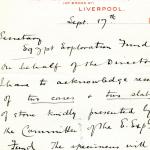 LIVERPOOL.
Sept. 17th
Secretary
Egypt Exploration Fund
On behalf of the Director
I have to acknowledge rec
of two cases & two slab
of stone kindly presented by
the Committee of the E. Exp
Fund The specimens will